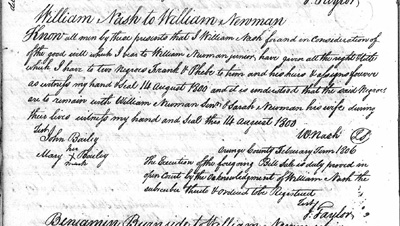 J. Taylor
William Nash to William Newman
Know all men by these presents that I William Nash for and in Consideration of
of the good will which I bear to William Newman junior, have given all the right & title
which I have to two Negroes Frank & Phebe to him and his heirs & assigns forever
as witness my hand & seal 14 August 1800 and it is understood that the said Negroes
are to remain with William Newman Senr & Sarah Newman his wife during
their lives witness my hand and Seal this 14 August 1800
Test W Nash
John Bailey
her
Mary X Bailey
mark
Orange County February Term 1806
The Execution of the foregoing Bill Sale is duly proved in
open Court by the acknowledgment of William Nash the
subscriber thereto & ordered to be Registered
Test
J. Taylor
Benjamin Burnside to William